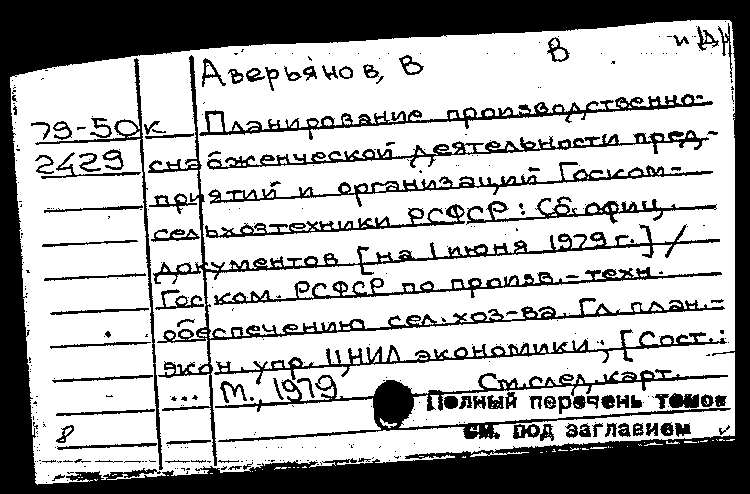 Аверьянов, В В и(Д)
79-50к Планирование производственно-
2429 снабженческой деятельности пред-
приятий и организаций Госком-
сельхозтехники РСФСР: Сб. офиц.
документов [на 1 июня 1979 г.] /
Госком. РСФСР по произв.-техн.
обеспечению сел. хоз-ва. Гл. план.-
экон. упр. ЦНИЛ экономики; [Сост.:
... М., 1979. См. след. карт.
Полный перечень томов
8 см. под заглавием